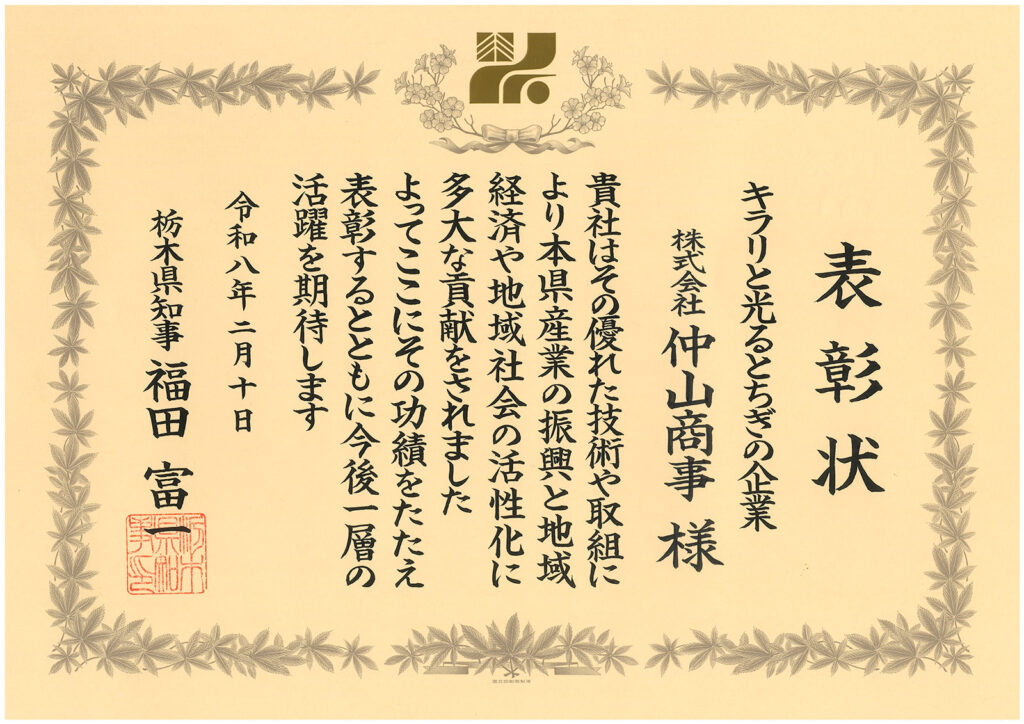 表彰状
キラリと光るとちぎの企業
株式会社 仲山商事 様
貴社はその優れた技術や取組に
より本県産業の振興と地域
経済や地域社会の活性化に
多大な貢献をされました
よってここにその功績をたたえ
表彰するとともに今後一層の
活躍を期待します
令和八年二月十日
栃木県知事 福田 富一